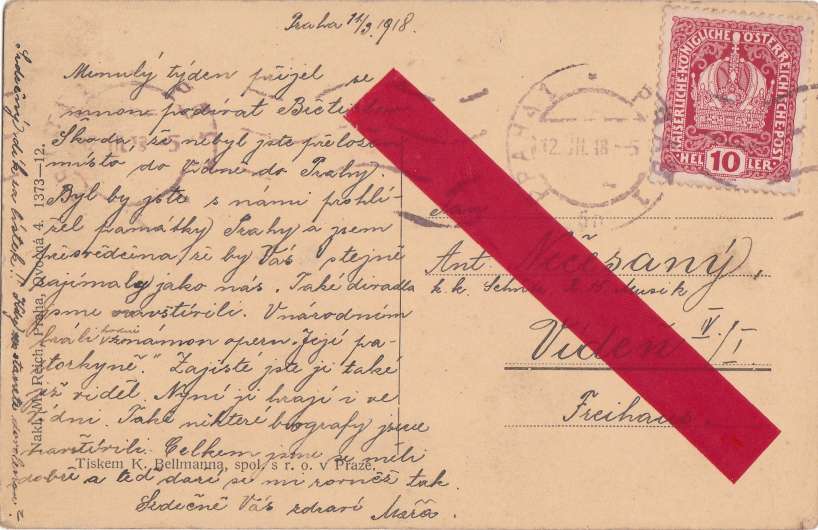 Praha 11/3 1918.
Minulý týden přijel se
mnou podívat Břetislav
Škoda, že nebyl jste přelože
místo do Vídně do Prahy.
Byl by jste s námi prohlí-
žel památky Prahy a jsem
přesvědčena, že by Vás stejně
zajímaly jako nás. Také divadla
jsme navštívili. V národním
hráli hodně známou operu "Její pa-
storkyně." Zajisté jste ji také
již viděl. Nyní ji hrají i ve
Vídni. Také některé biografy jsme
navštívili. Celkem jsme se měli
dobře a teď daří se mi rovněž tak.
Srdečně Vás zdraví Máňa.
Srdečný dík za lístek!! Kdy dostanete dovolenou?
Nakl. M. Reich, Praha, Dvorná 4. 1373—12.
Tiskem K. Bellmanna, spol. s r. o. v Praze.
KAISERLICHE KÖNIGLICHE ÖSTERREICHISCHE POST
HELLER
10
PRAHA 1
12. III. 18 - 5
Ant. Nečesaný,
k. k. Musik
Vídeň IV/I.
Freihaus.